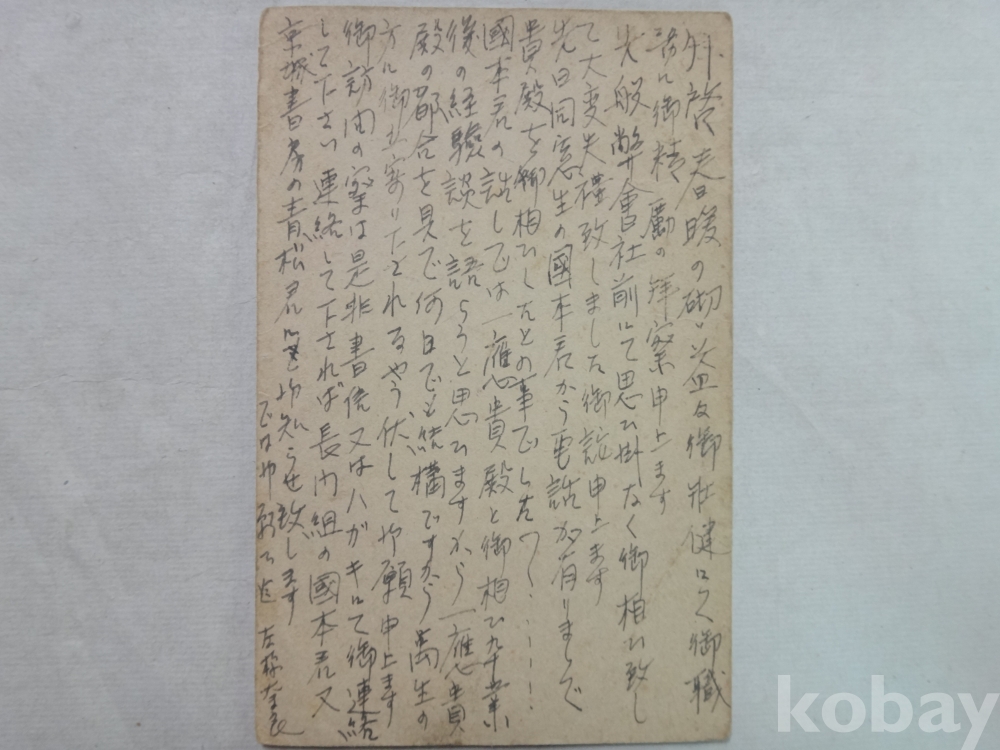 拝啓 春日暖の砌 益々御壮健にて御職
務に御精励の拝察申上ます
先般弊會社前にて思ひ掛なく御相ひ致し
て大変失礼致しました御詫申上ます
先日同窓生の國本君から電話が有りまして
貴殿を御相ひしたとの事でした
國本君の話しでは一應貴殿と御相ひ卒業
後の経験談を語らうと思ひますから一應貴
殿の都合を見て何日でも結構ですから 生の
方に御立寄り下されるやう伏して御願申上ます
御訪問の際は是非書信又はハガキにて御連絡
して下さい 連絡して下されば長内組の國本君又
京城書房の青松君にも御知らせ致します
では御 迄